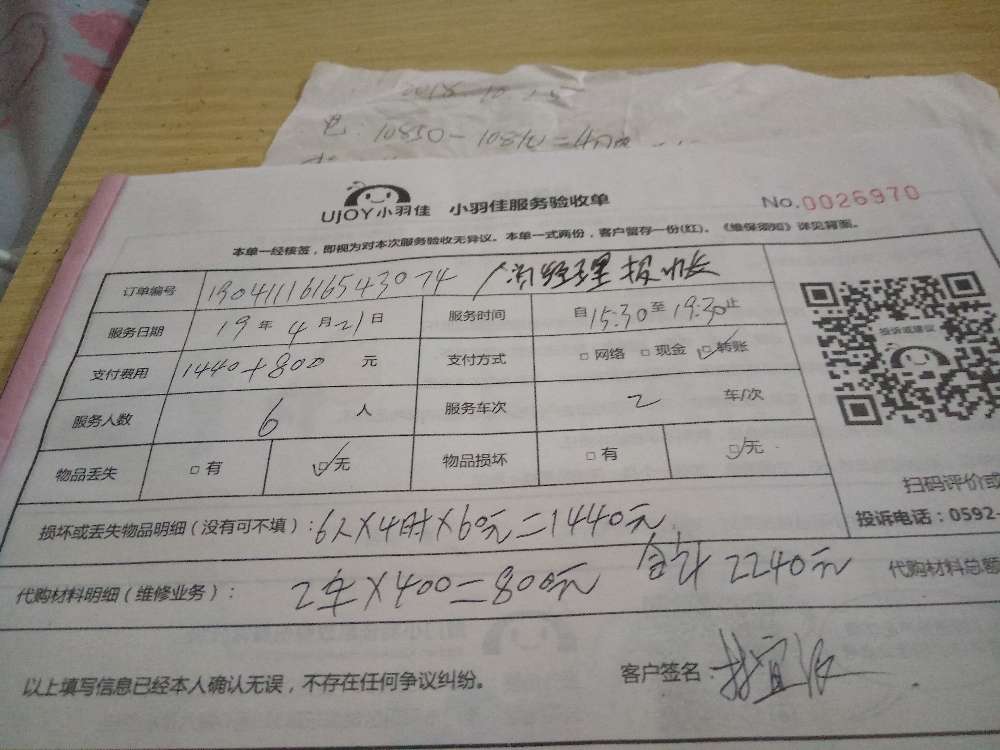 2018.10.25
电: 10850-10810=40度
UJOY小羽佳 小羽佳服务验收单 No.0026970
本单一经核签，即视为对本次服务验收无异议。本单一式两份，客户留存一份(红)。《维保须知》详见背面。
订单编号 19041116165430 74
服务日期 19年4月21日 服务时间 自15:30至19:30止
支付费用 1440+800 元 支付方式 □网络 □现金 ☑转账
投诉或建议
服务人数 6 人 服务车次 2 车/次
物品丢失 □有 ☑无 物品损坏 □有 ☑无
扫码评价或
损坏或丢失物品明细（没有可不填）: 6人×4时×60元=1440元
投诉电话：0592-
代购材料明细（维修业务）: 2车×400=800元 合计2240元 代购材料总额
以上填写信息已经本人确认无误，不存在任何争议纠纷。 客户签名: